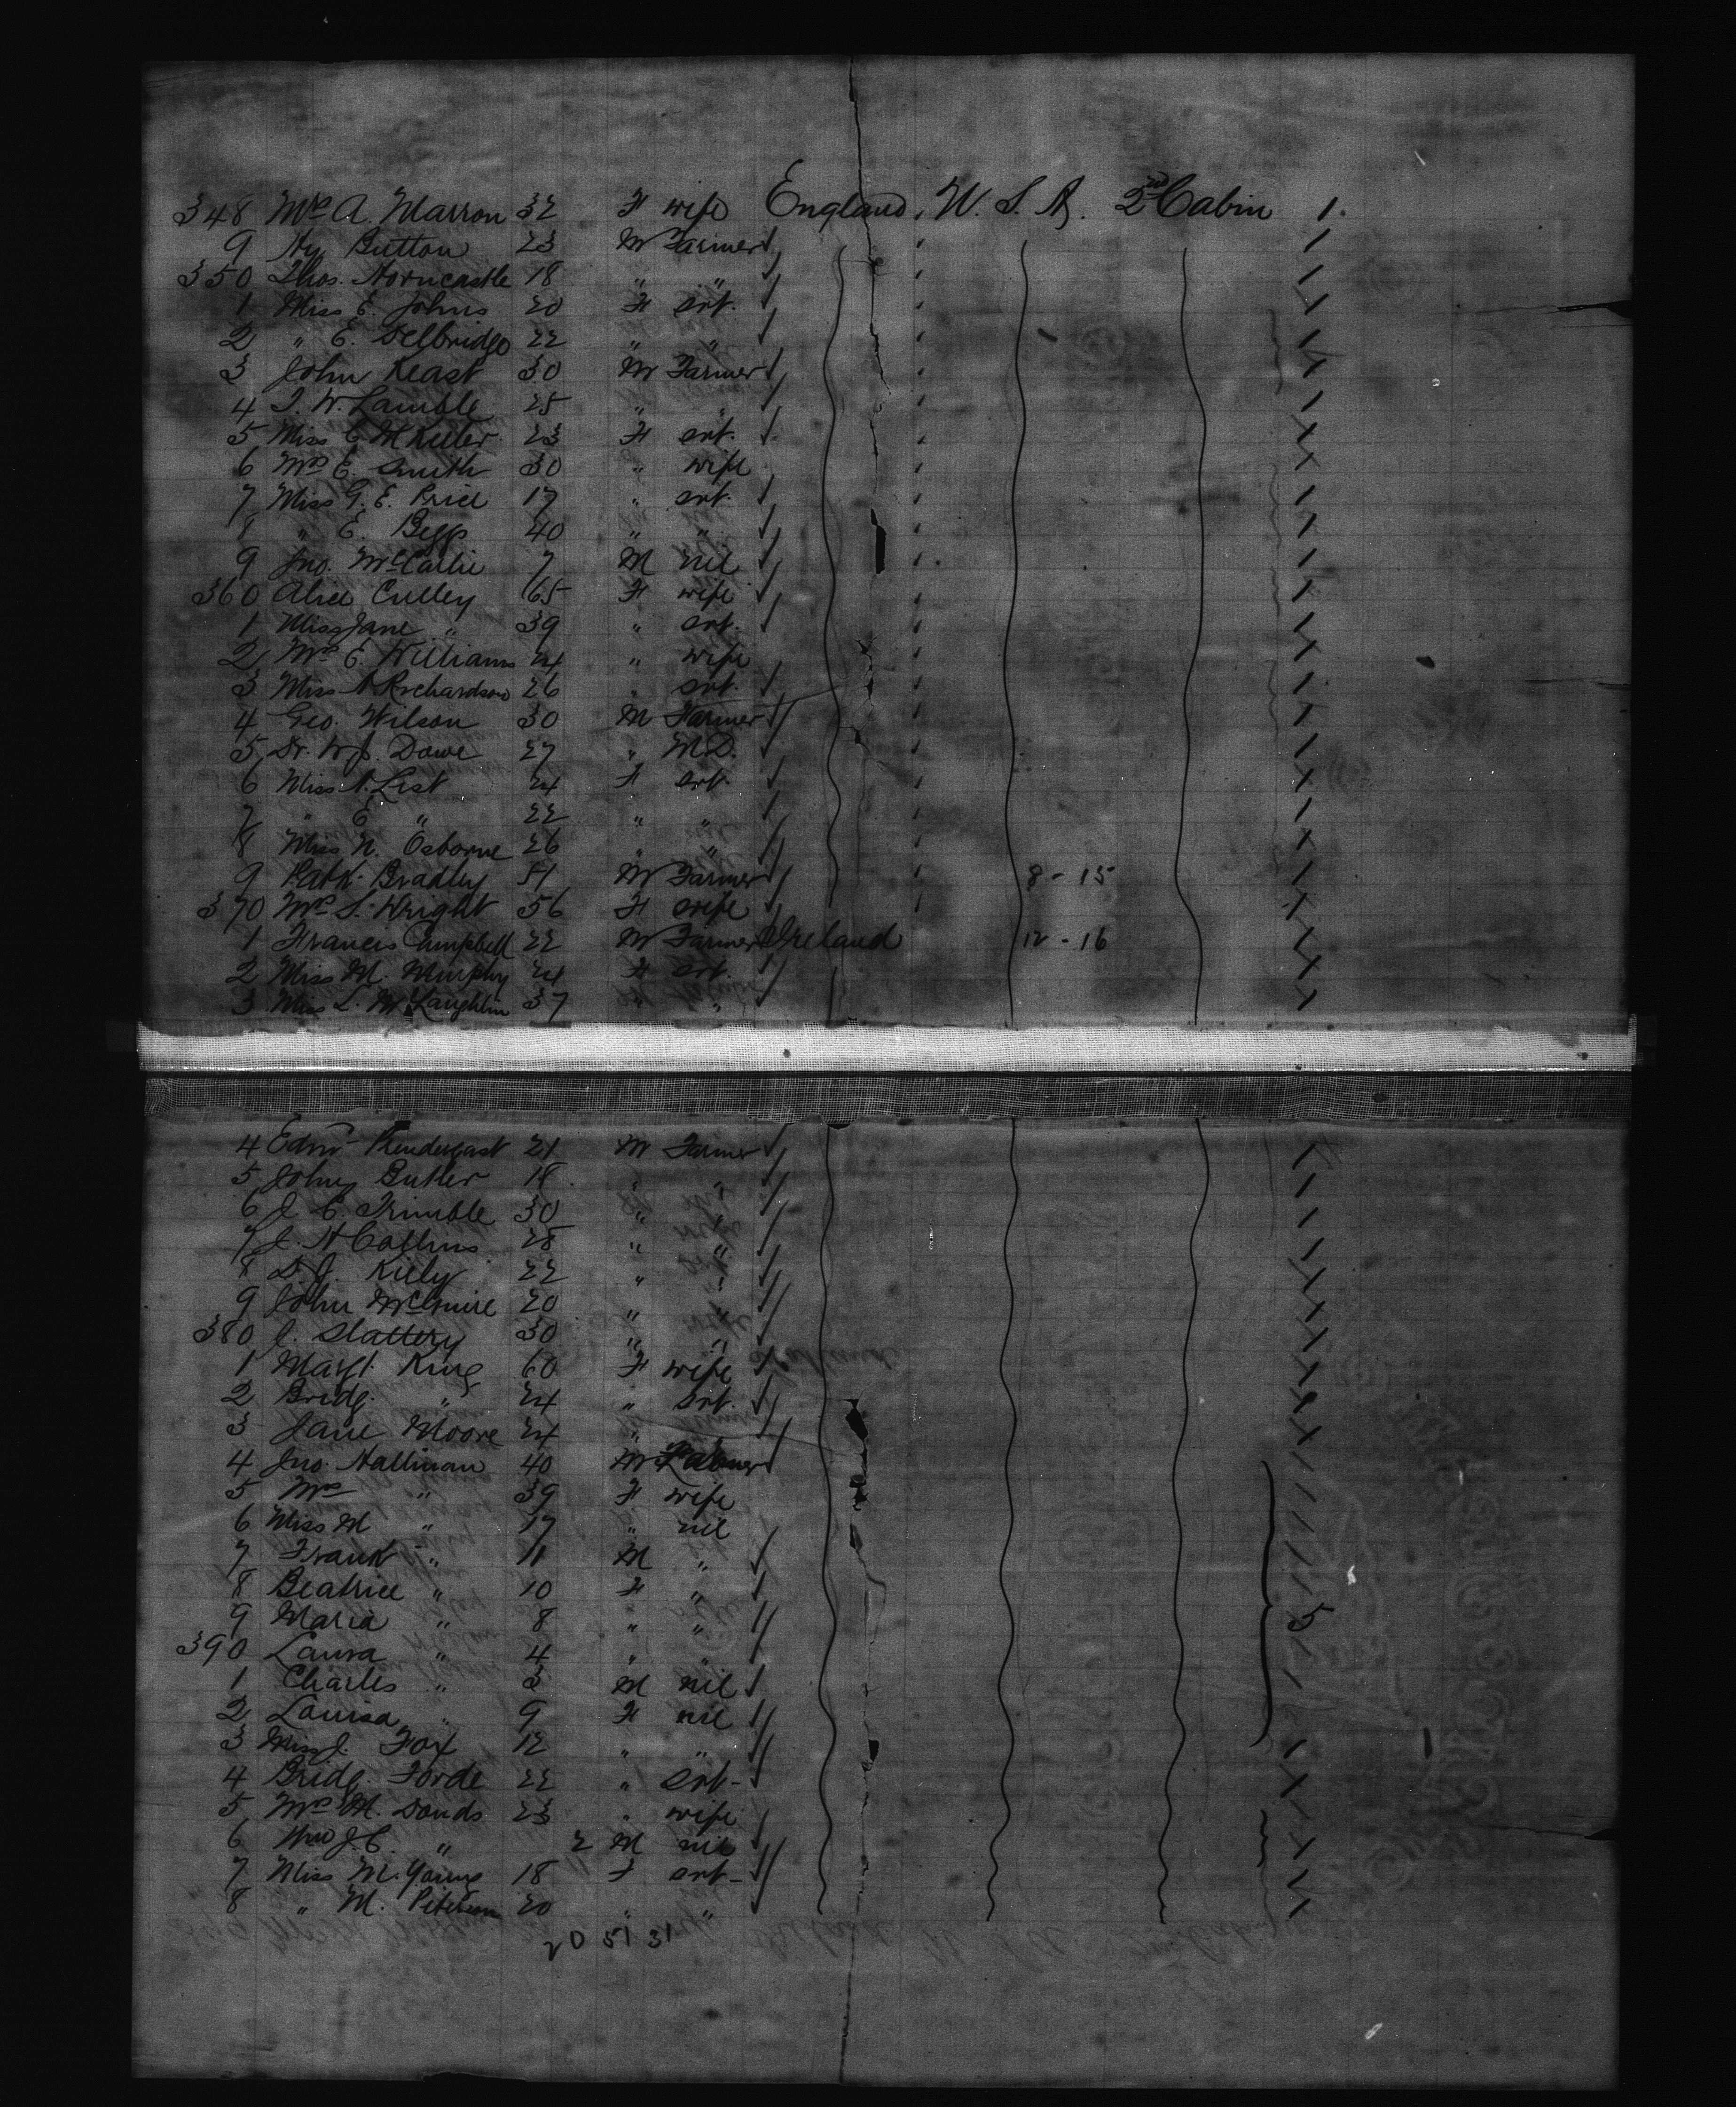 348 Mrs A. Marron 32 F wife England, U. S. A. 2nd Cabin 1.
9 Hy Button 23 M Farmer
350 Thos. Horncastle 18 " "
1 Miss E. Johns 20 F svt.
2 " E. Delbridge 22 " "
3 John Keast 30 M Farmer
4 T. W. Lamble 25 " "
5 Miss C. M Keeler 23 F svt.
6 Mrs E. Smith 30 " wife
7 Miss G. E. Price 17 " svt.
8 " E. Begg 40 " "
9 Jno. McCallie 7 M nil
360 Alice Culley 65 F wife
1 Miss Jane " 39 " svt.
2 Mrs E. Williams 24 " wife
3 Miss A Richardson 26 " svt.
4 Geo. Wilson 30 M Farmer
5 Dr. W. J. Dowe 27 " M.D.
6 Miss A. List 24 F svt.
7 " E " 22 " "
8 Miss N. Osborne 26 " "
9 Patk. Bradley 51 M Farmer 8 - 15
370 Mrs S. Wright 56 F wife
1 Francis Campbell 22 M Farmer Ireland 12 - 16
2 Miss M. Murphy 24 F svt.
3 Miss L. McLaughlin 37 " "
4 Edwd Prendergast 21 M Farmer
5 John Butler 18 " "
6 J. C. Trimble 30 " "
7 J. H Collins 28 " "
8 D. J. Kiely 22 " "
9 John McGuire 20 " "
380 J. Slattery 30 " "
1 Margt. King 60 F wife
2 Bridg. " 24 " svt.
3 Jane Moore 24 " "
4 Jno. Hallinan 40 M
5 Mrs " 39 F wife
6 Miss M " 17 " nil
7 Frank " 11 M "
8 Beatrice " 10 F "
9 Maria " 8 " " 5
390 Laura " 4 " "
1 Charles " 3 M nil
2 Louisa " 9 F nil
3 Miss J. Fox 12 " "
4 Bridg. Forde 22 " svt-
5 Mrs M. Sonds 23 " wife
6 J. C. " 2 M nil
7 Miss M. Young 18 F svt-
8 " M. Peterson 20 " "
20 51 31